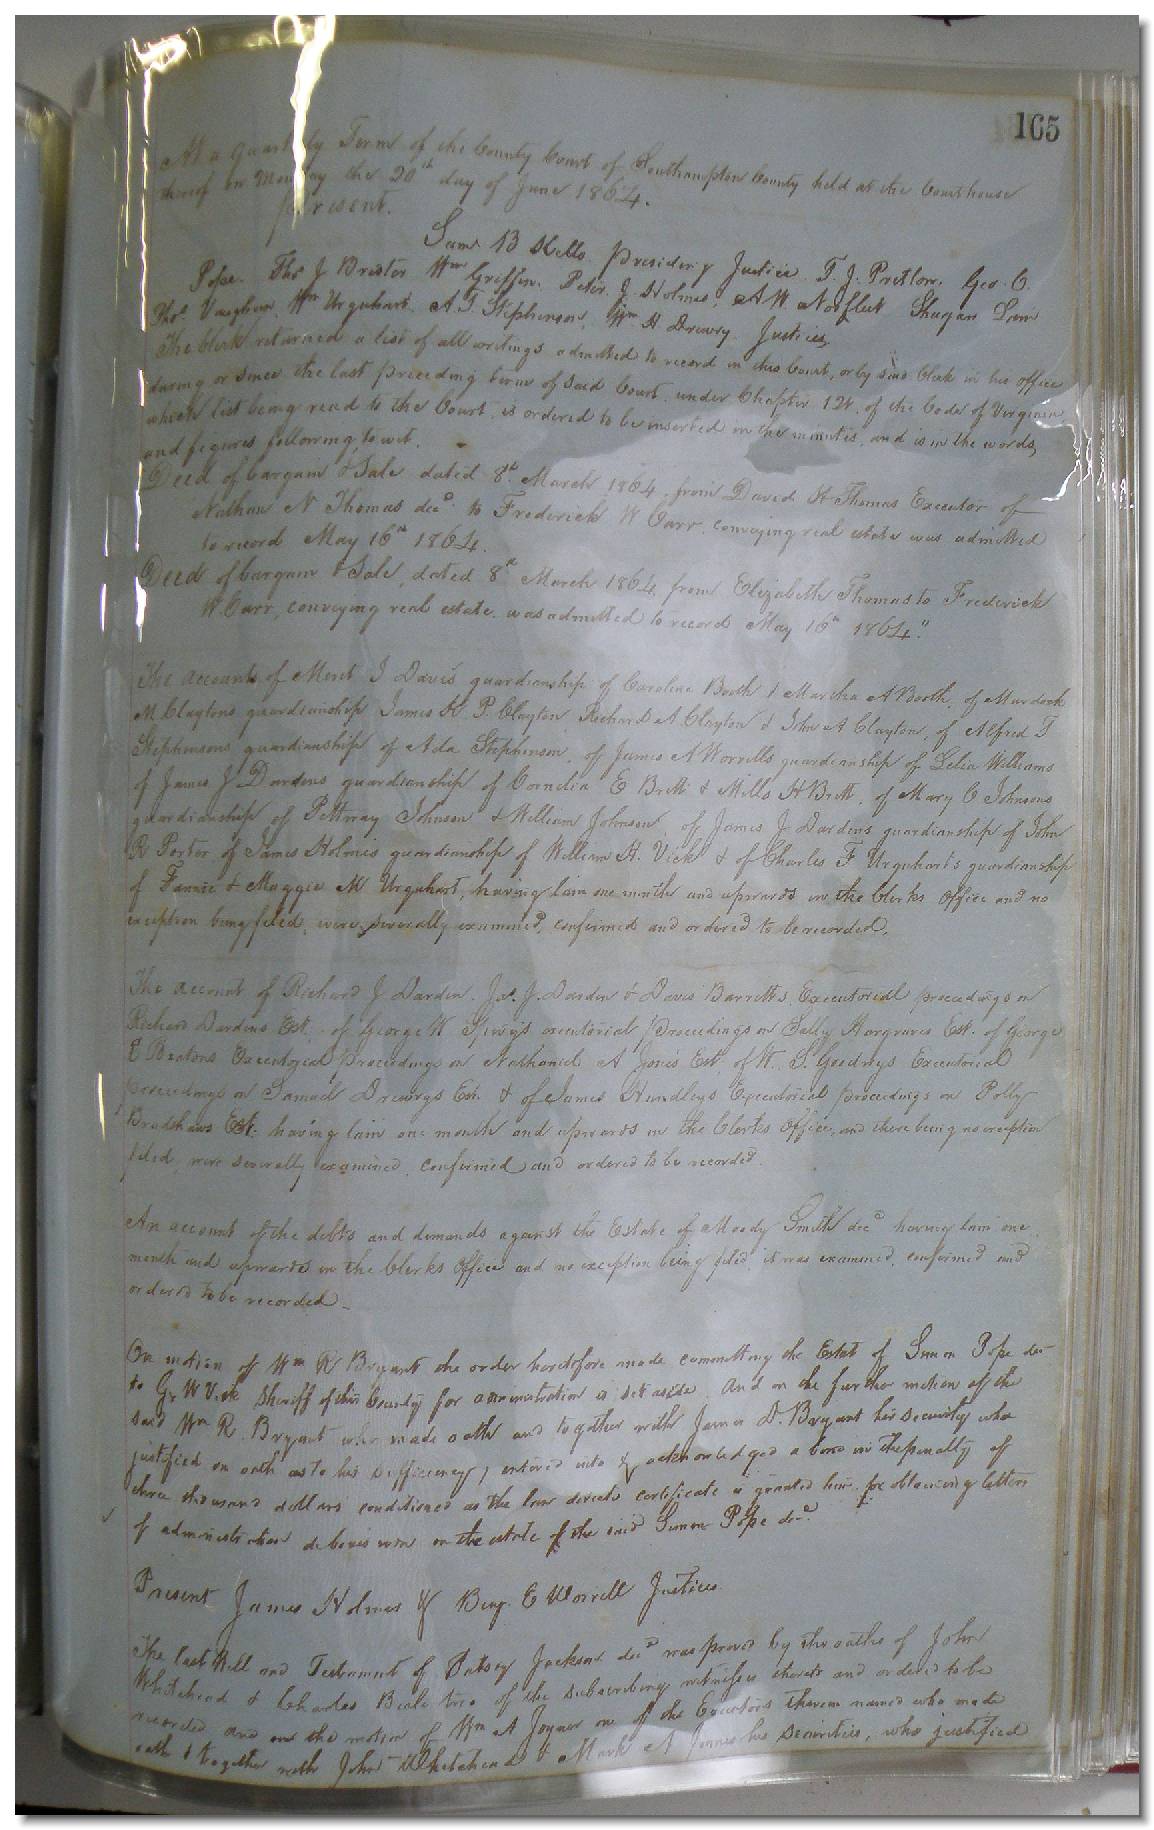 165
At a Quarterly Term of the County Court of Southampton County held at the Courthouse
thereof on Monday the 20th day of June 1864.
present.
Sam B Kello Presiding Justice T. J. Pretlow, Geo. O.
Pope. Thos J Brister Wm Griffin. Peter J Holmes, A W. Norfleet
Thos. Vaughan, Wm Urquhart. A. T. Stephenson, Wm H Drewry Justices
The Clerk returned a list of all writings admitted to record in this Court, or by said Clerk in his office
during or since the last preceding term of said Court under Chapter 121. of the Code of Virginia
which list being read to the Court, is ordered to be inserted in the minutes, and is in the words,
and figures following, to wit.
Deed of bargain & Sale dated 8th March 1864, from David H Thomas Executor of
Nathan N Thomas decd. to Frederick W Carr, conveying real estate was admitted
to record May 16th 1864.
Deed of bargain & Sale, dated 8th March 1864, from Elizabeth Thomas to Frederick
W. Carr, conveying real estate, was admitted to record May 16th 1864."
The accounts of Merit J Davis guardianship of Caroline Booth & Martha A Booth, of Murdock
M Claytons guardianship James K P. Clayton, Richard A Clayton & John A Clayton, of Alfred T
Stephensons guardianship of Ada Stephenson, of James A Worrells guardianship of Lelia Williams
of James J Dardens guardianship of Cornelia E Britt & Mills H Britt, of Mary C Johnsons
guardianship of Pettway Johnson & William Johnson, of James J Dardens guardianship of John
R Porter of James Holmes guardianship of William H. Vick & of Charles F Urquharts guardianship
of Fannie & Maggie M Urquhart, having lain one month and upwards in the Clerks Office and no
exception being filed, were severally examined, confirmed and ordered to be recorded.
The account of Richard J Darden. Jas. J. Darden & Davis Barretts Executorial proceedings on
Richard Dardens Est. of George W Spiveys executorial proceedings on Sally Hargraves Est. of George
E Beatons Executorial proceedings on Nathaniel A Jones Est. of W. S. Goodwyns Executorial
proceedings on Samuel Drewrys Est. & of James Hundleys Executorial proceedings on Polly
Bradshaws Est. having lain one month and upwards in the Clerks Office, and there being no exception
filed, were severally examined, confirmed and ordered to be recorded.
An account of the debts and demands against the Estate of Moody Smith decd having lain one
month and upwards in the Clerks Office and no exception being filed, it was examined, confirmed and
ordered to be recorded
On motion of Wm R Bryant the order heretofore made committing the Estate of Simon Pope dec
to G. W Vick Sheriff of this County for administration is set aside. And on the further motion of the
said Wm R. Bryant who made oath and together with James D. Bryant his security who
justified on oath as to his sufficiency, entered into & acknowledged a bond in the penalty of
three thousand dollars conditioned as the law directs certificate is granted him for obtaining letters
of administration debonis non on the estate of the said Simon Pope decd.
Present James Holmes & Benj. E Worrell Justices
The last Will and Testament of Patsey Jackson decd was proved by the oaths of John
Whitehead & Charles Beale two of the subscribing witnesses thereto and ordered to be
recorded and on the motion of Wm A Joyner one of the Executors therein named who made
oath & together with John Whitehead & Mark A his Securities, who justified